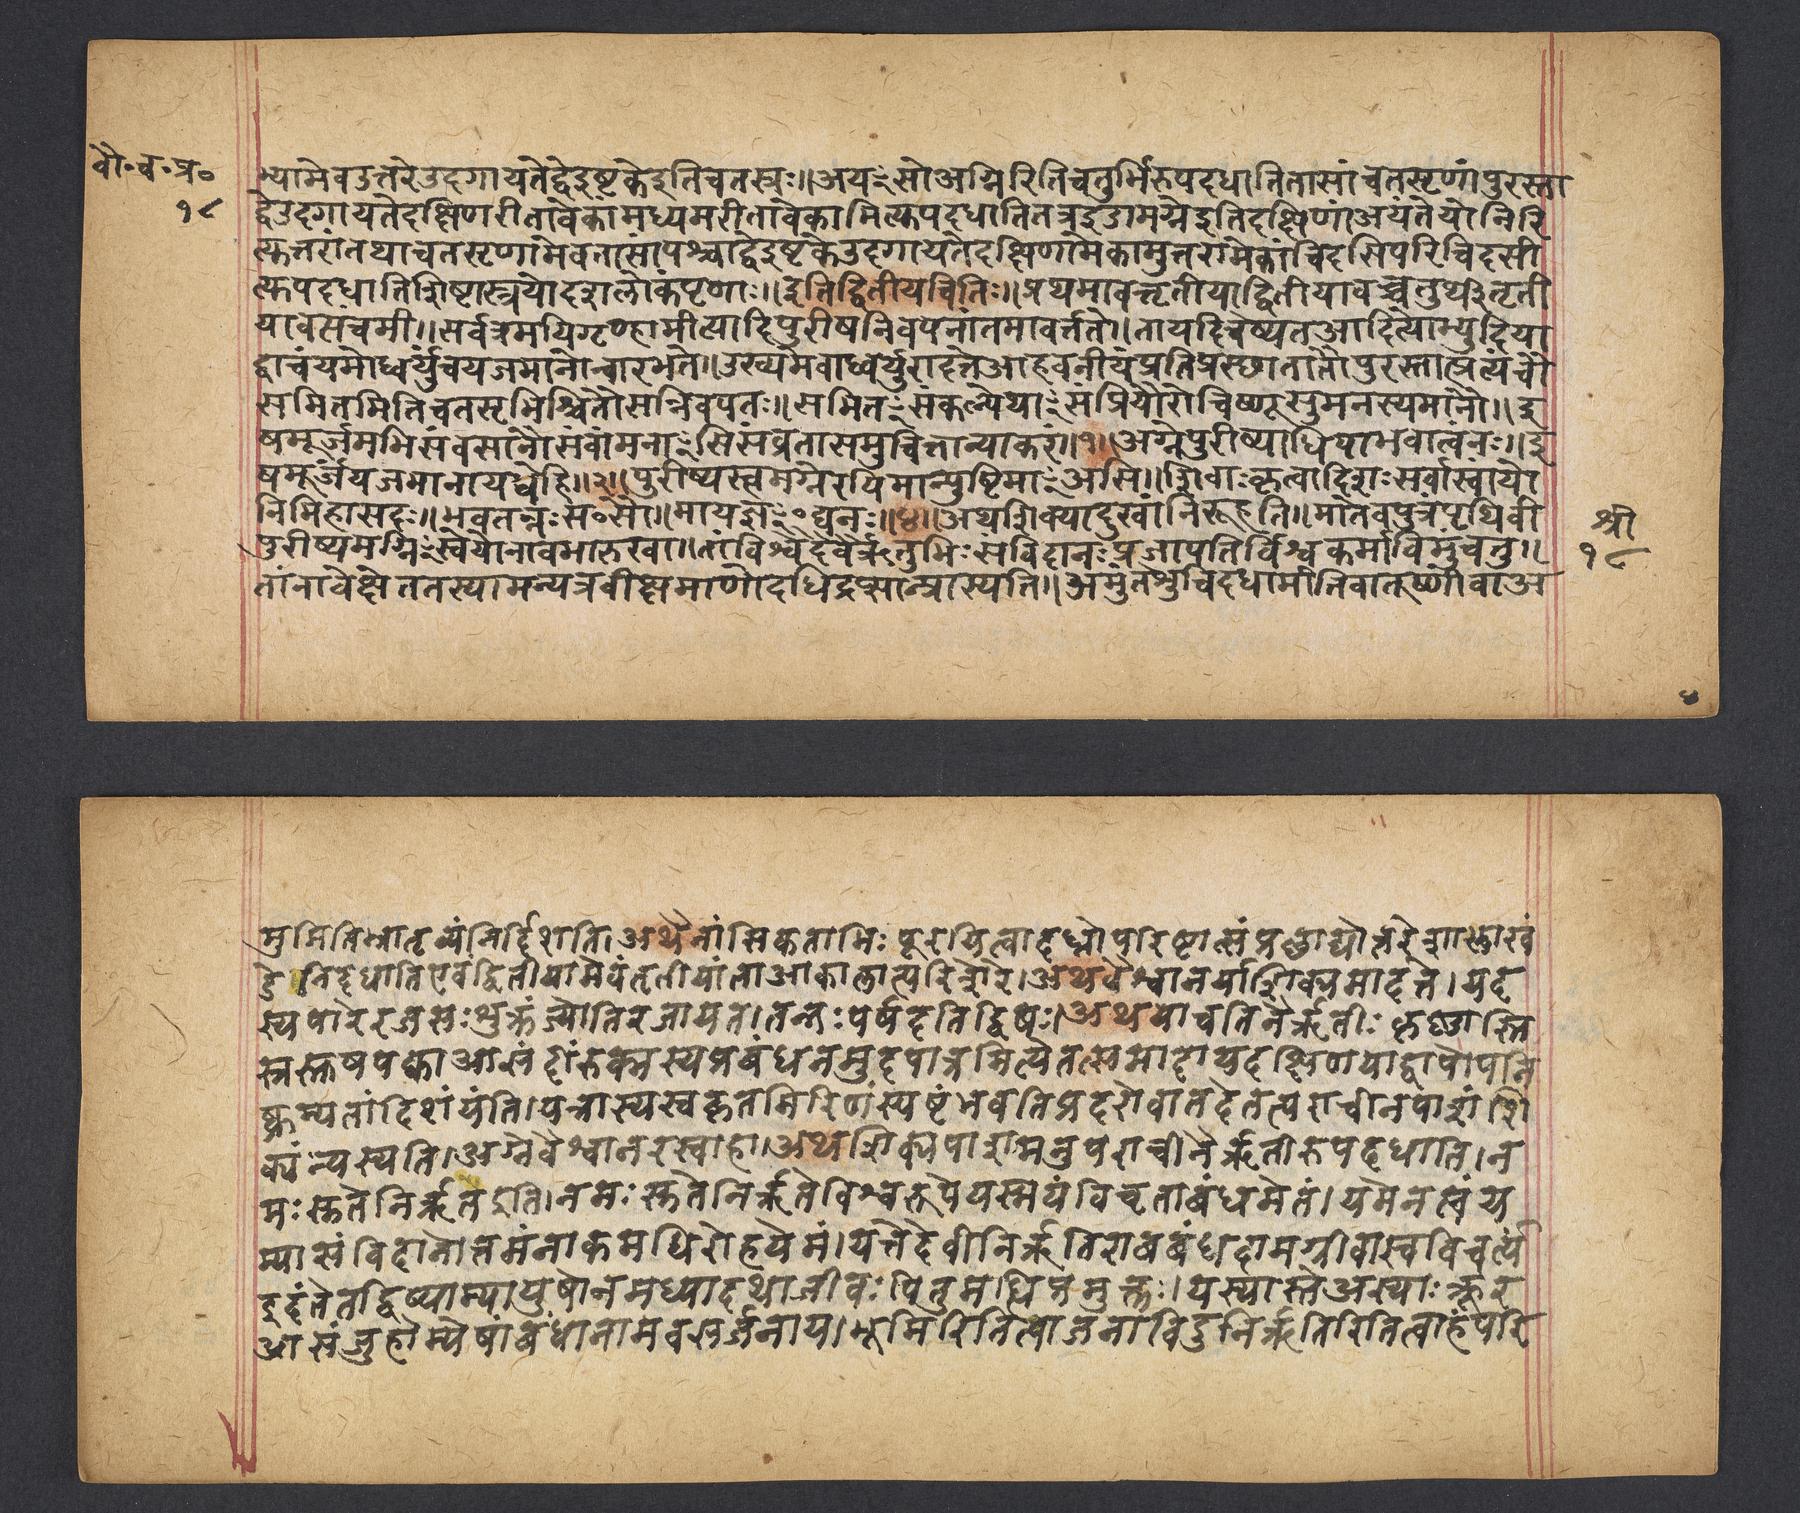 बौ॰च॰प्र॰
१८
भ्यामेवउत्तरेउदगायतेद्वेइष्टकेइतिचतस्रः॥अयꣳसोअग्निरितिचतुर्भिरुपदधातितासांचतसृणांपुरस्ता
द्वेउदगायतेदक्षिणरीतावेकांमध्यमरीतावेकामित्युपदधातितत्रइडामग्नेइतिदक्षिणांअयंतेयोनिरि
त्युत्तरांतथाचतसृणामेवतासांपश्चाद्वेइष्टकेउदगायतेदक्षिणामेकामुत्तरामेकांचिदसिपरिचिदसी
त्युपदधातिशिष्टास्त्रयोदशलोकंपृणाः॥इतिद्वितीयचितिः॥प्रथमावत्तृतीयाद्वितीयावच्चतुर्थ्यातृती
यावत्पंचमी॥सर्वत्रमयिगृण्हामीत्यादिपुरीषनिवपनांतमावर्त्तते॥तायदिचेष्यतआदित्याभ्युदिया
द्वाचंयमोध्वर्युंचयजमानोन्वारभते॥उख्यमेवाध्वर्युरादत्तेआहवनीयंप्रतिप्रस्छातातौपुरस्तात्प्रत्यंचौ
समितमितिचतसृभिश्चितौसन्निवपतः॥समितꣳसंकल्पेथाꣳसंप्रियौरोचिष्णूसुमनस्यमानौ॥इ
षमूर्जमभिसंवसानौसंवांमनाꣳसिसंव्रतासमुचित्तान्याकरं॥१॥अग्नेपुरीष्याधिपाभवात्वंनः॥इ
षमूर्जंयजमानायधेहि॥२॥पुरीष्यस्त्वमग्नेरयिमान्पुष्टिमाꣳअसि॥शिवाःकृत्वादिशःसर्वास्वांयो
निमिहासदः॥भवतन्नःस॰सौ॥मायज्ञꣳ॰द्यनः॥४॥अथशिक्यादुखांनिरूहति॥मातेवपुत्रंपृथिवी
पुरीष्यमग्निꣳस्वेयोनावभारुखा॥तांविश्वैर्देवैर्ऋतुभिःसंविदानःप्रजापतिर्विश्वकर्माविमुंचतु॥
तांनावेक्षेततस्यामन्यत्रवीक्षमाणोदधिद्रप्सान्प्रास्यति॥अमुंतेशुचिदधामीतिवातूष्णींवाअ
श्री
१८
४
मुमितिभ्रातृव्यंनिर्दिशति।अथैनांसिकताभिःपूरयित्वादध्नोपरिष्टात्संप्रछाद्योत्तरेशालाखं
डेनिदधातिएवंद्वितीयामेवंतृतीयांताआकालात्परिशेरे।अथवैश्वानर्याशिक्यमादत्ते।यद
स्यपारेरजसःशुक्रंज्योतिरजायत।तन्नःपर्षदतिद्विषः।अथयाचतिनैर्ऋतीःकृष्णास्ति
स्रस्तुषपक्वाआसंदींरुक्मस्यप्रबंधनमुदपात्रमित्येतत्समादायदक्षिणयाद्वारोपनि
ष्क्रम्यतांदिशंयंति।यत्रास्यस्वकृतमिरिणंस्पष्टंभवतिप्रदरोवातदेतत्पराचीनपाशंशि
क्यंन्यस्यति।अग्नेवैश्वानरस्वाहा।अथशिक्यपाशमनुपराचीर्नैर्ऋतीरुपदधाति।न
मःसुतेनिर्ऋतइति।नमःसुतेनिर्ऋतेविश्वरूपेयस्मयंविचृताबंधमेतं।यमेनत्वंय
म्यासंविदानोत्तमंनाकमधिरोहयेमं।यत्तेदेवीनिर्ऋतिराबबंधदामग्रीवास्वविचर्त्यं
इदंतेतद्विष्याम्यायुषोनमध्यादथाजीवःपितुमद्धिप्रमुक्तः।यस्यास्तेअस्याःक्रूर
आसंजुहोम्येषांबंधानामवसर्जनाय।भूमिरितित्वाजनाविदुर्निर्ऋतिरितित्वाहंपरि